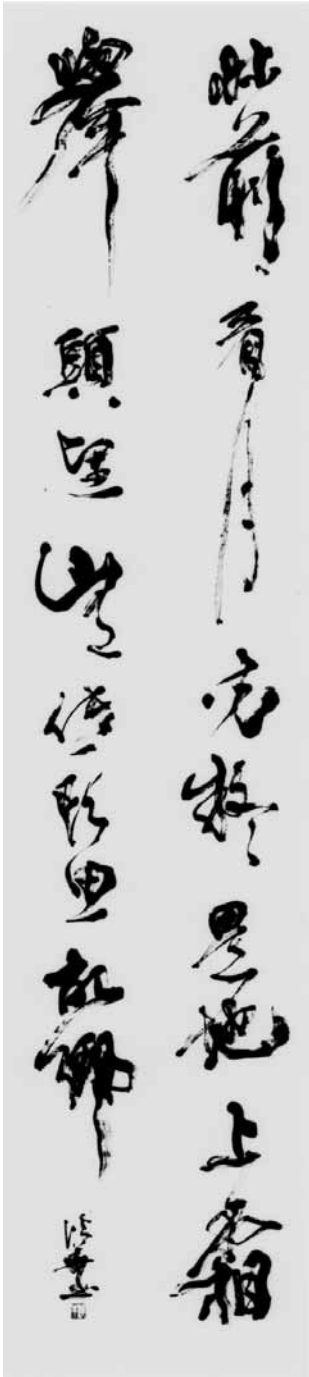 牀前看月光疑是地上霜
舉頭望山月低頭思故鄉